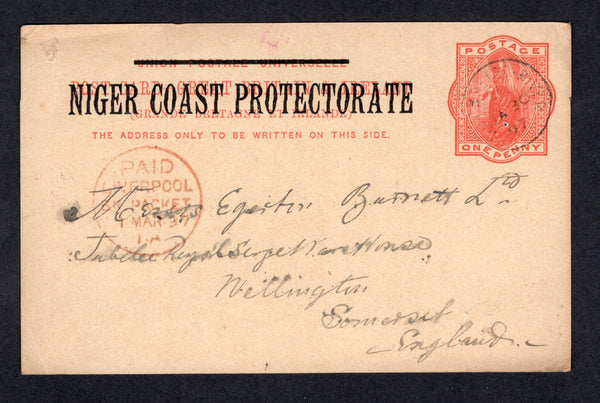 UNION POSTALE UNIVERSELLE
POST CARD GREAT BRITAIN & IRELAND
NIGER COAST PROTECTORATE
(GRANDE BRETAGNE ET IRLANDE)
THE ADDRESS ONLY TO BE WRITTEN ON THIS SIDE.
POSTAGE
ONE PENNY
PAID
LIVERPOOL
PACKET
1 MAR 97
Messrs Egerton Burnett Ld
Jubilee Royal Serge Warehouse
Wellington
Somerset
England.